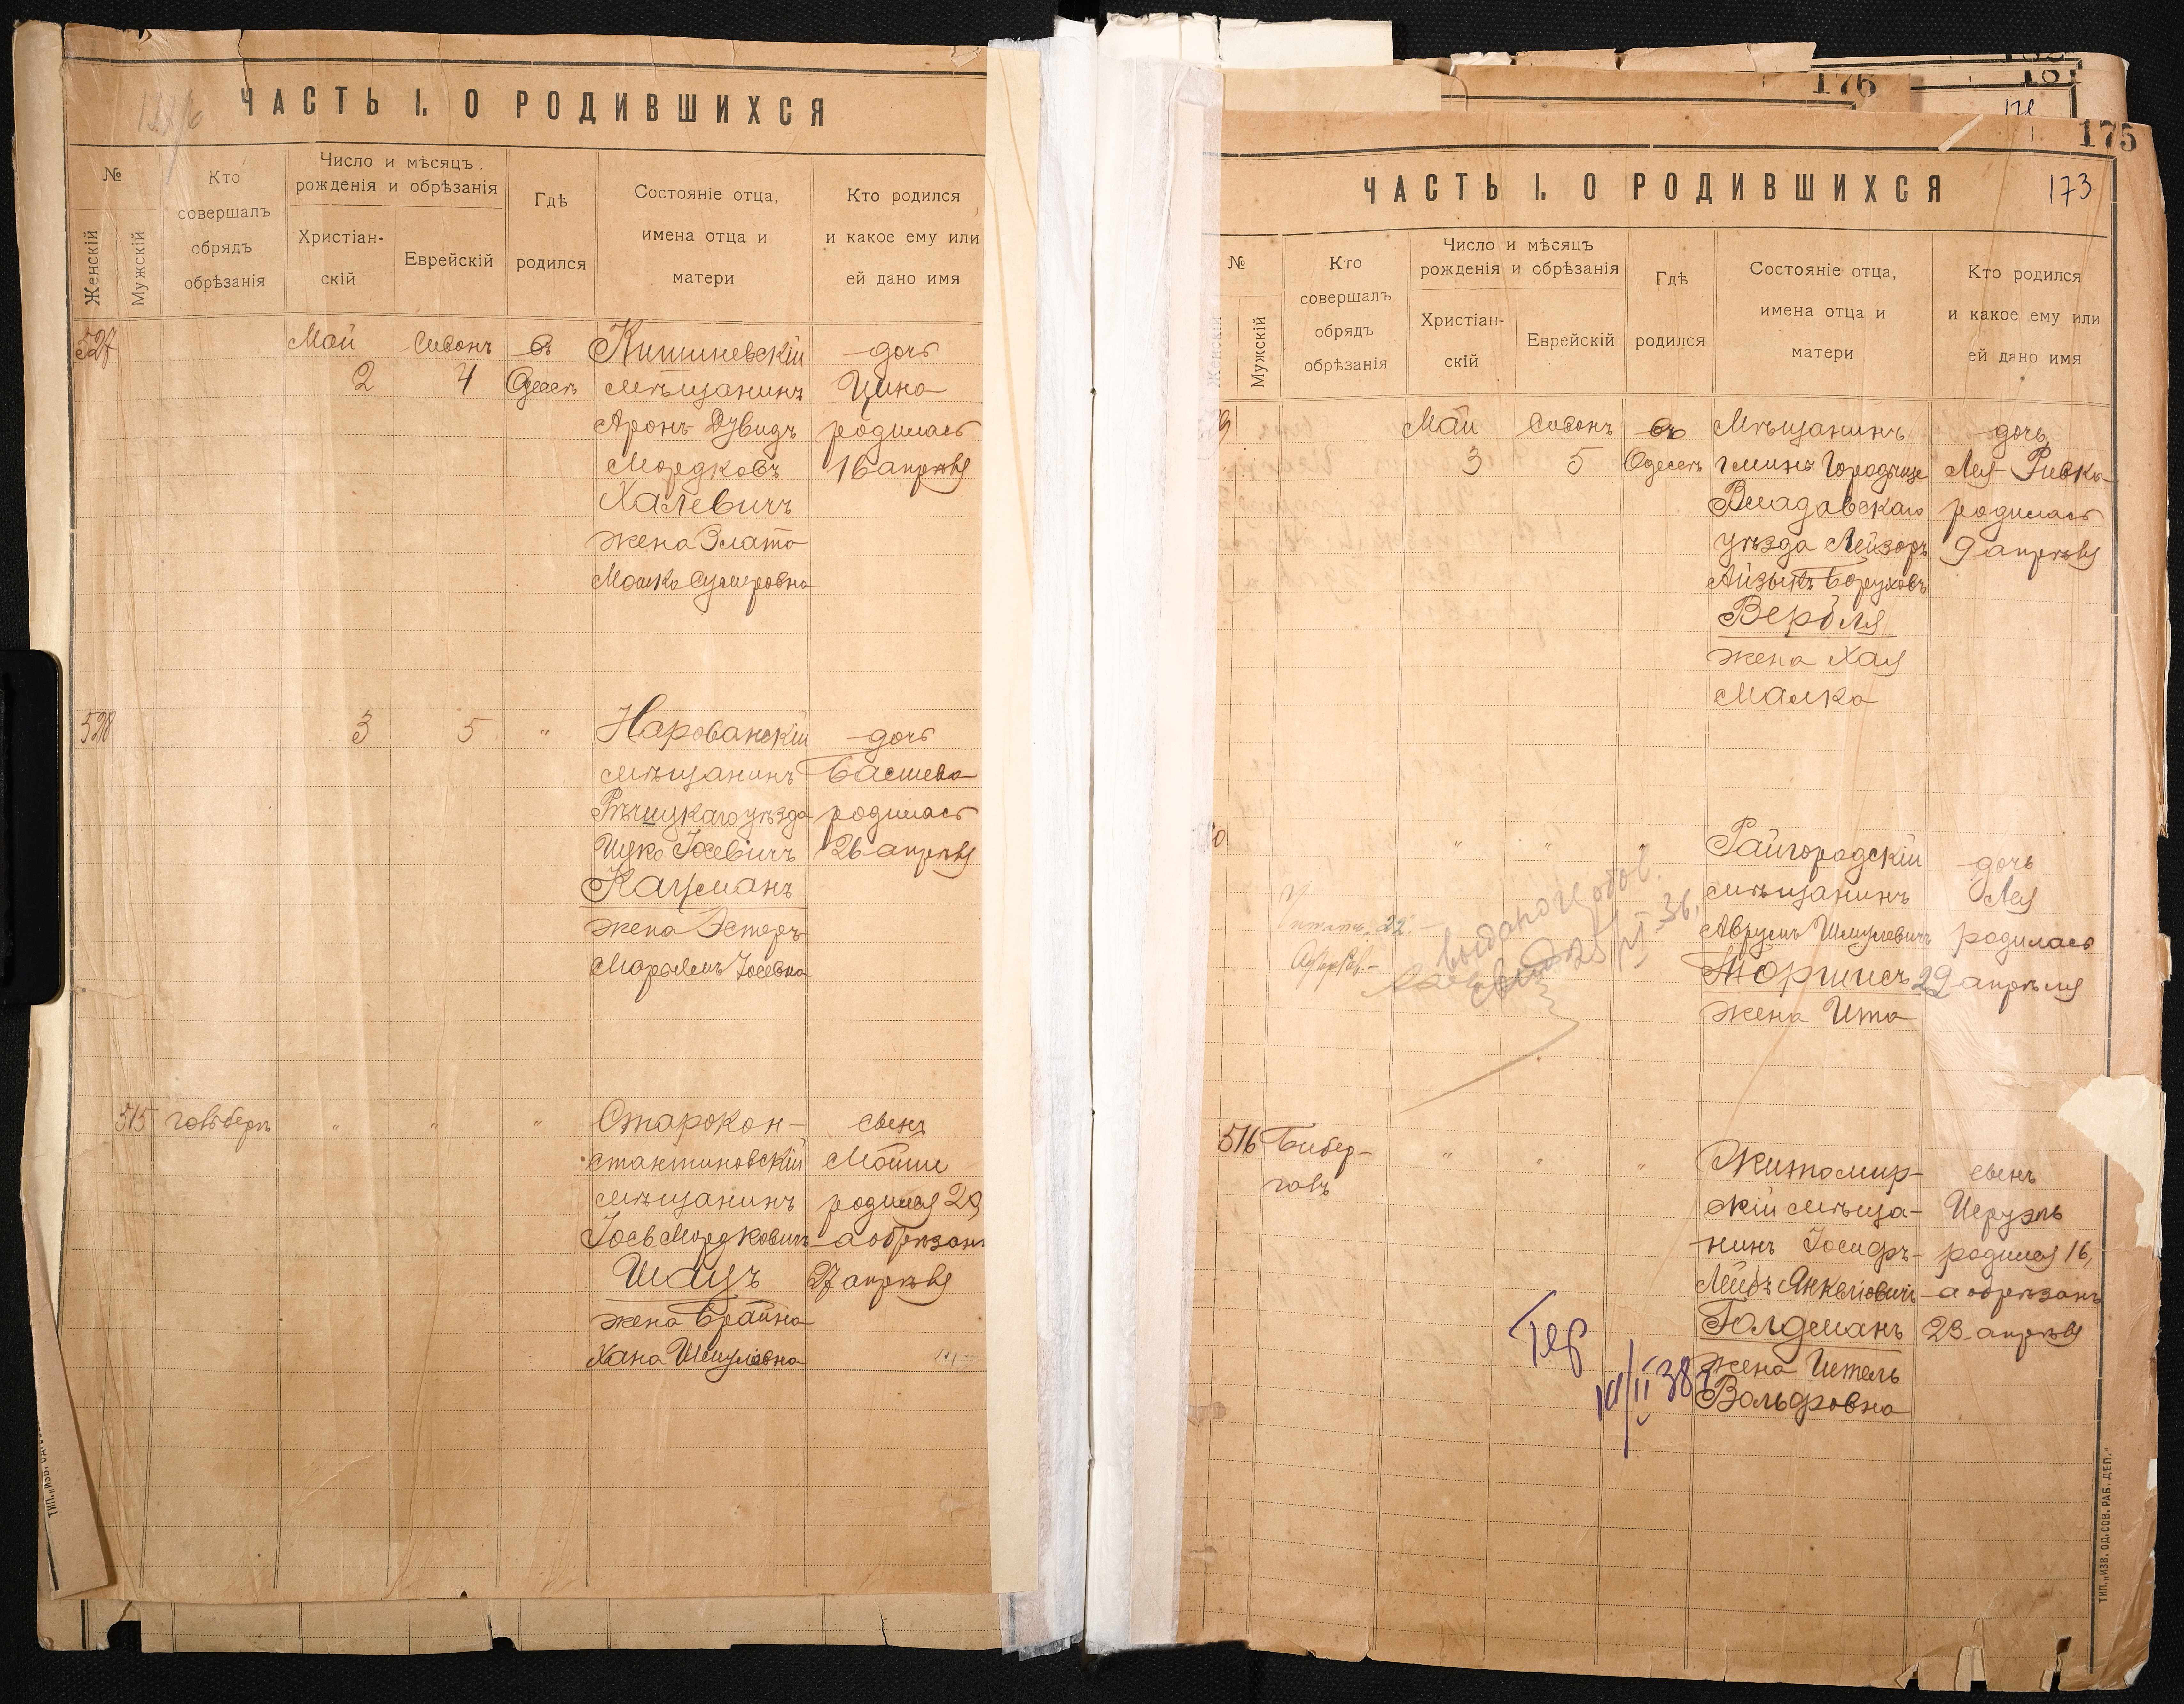 ЧАСТЬ I. О РОДИВШИХСЯ
№
Женскій
Мужскій
Кто
совершалъ
обрядъ
обрѣзанія
Число и мѣсяцъ
рожденія и обрѣзанія
Христіан-
скій
Еврейскій
Гдѣ
родился
Состояніе отца,
имена отца и
матери
Кто родился
и какое ему или
ей дано имя
527
Май
2
Сивонъ
4
въ
Одессѣ
Кишиневскій
мѣщанинъ
Аронъ-Дувидъ
Мордковъ
Халевичъ
жена Злата
дочь
Цина
родилась
16 апрѣля
528
3
5
"
Нарованскій
мѣщанинъ
Рѣчицкаго уѣзда
Ицко Іосевичъ
Кацманъ
жена Эстеръ-
Марьямъ Іосевна
дочь
Басшева
родилась
26 апрѣля
515
Голдберъ
"
"
"
Старокон-
стантиновскій
мѣщанинъ
Іось Мордковичъ
Шацъ
жена Брайна
Хана Шмулевна
сынъ
Мойше
родился 20,
а обрѣзанъ
27 апрѣля
176
175
173
ЧАСТЬ I. О РОДИВШИХСЯ
№
Женскій
Мужскій
Кто
совершалъ
обрядъ
обрѣзанія
Число и мѣсяцъ
рожденія и обрѣзанія
Христіан-
скій
Еврейскій
Гдѣ
родился
Состояніе отца,
имена отца и
матери
Кто родился
и какое ему или
ей дано имя
9
Май
3
Сивонъ
5
въ
Одессѣ
Мѣщанинъ
гмины Городище
Владавскаго
уѣзда Лейзоръ
Айзыкъ Боруховъ
Вербля
жена Хая
Малка
дочь
Лея-Ривка
родилась
9 апрѣля
0
"
"
"
Райгородскій
мѣщанинъ
Аврумъ Шмулевичъ
Торчисъ
жена Ита
дочь
Лея
родилась
29 апрѣля
516
Бибер-
галъ
"
"
"
Житомир-
скій мѣща-
нинъ Іосифъ-
Лейбъ Янкелевичъ
Голдманъ
жена Ителъ
Вольфовна
сынъ
Исруэль
родился 16,
а обрѣзанъ
23 апрѣля
ТИП. „ИЗВ. ОД. СОВ. РАБ. ДЕП."